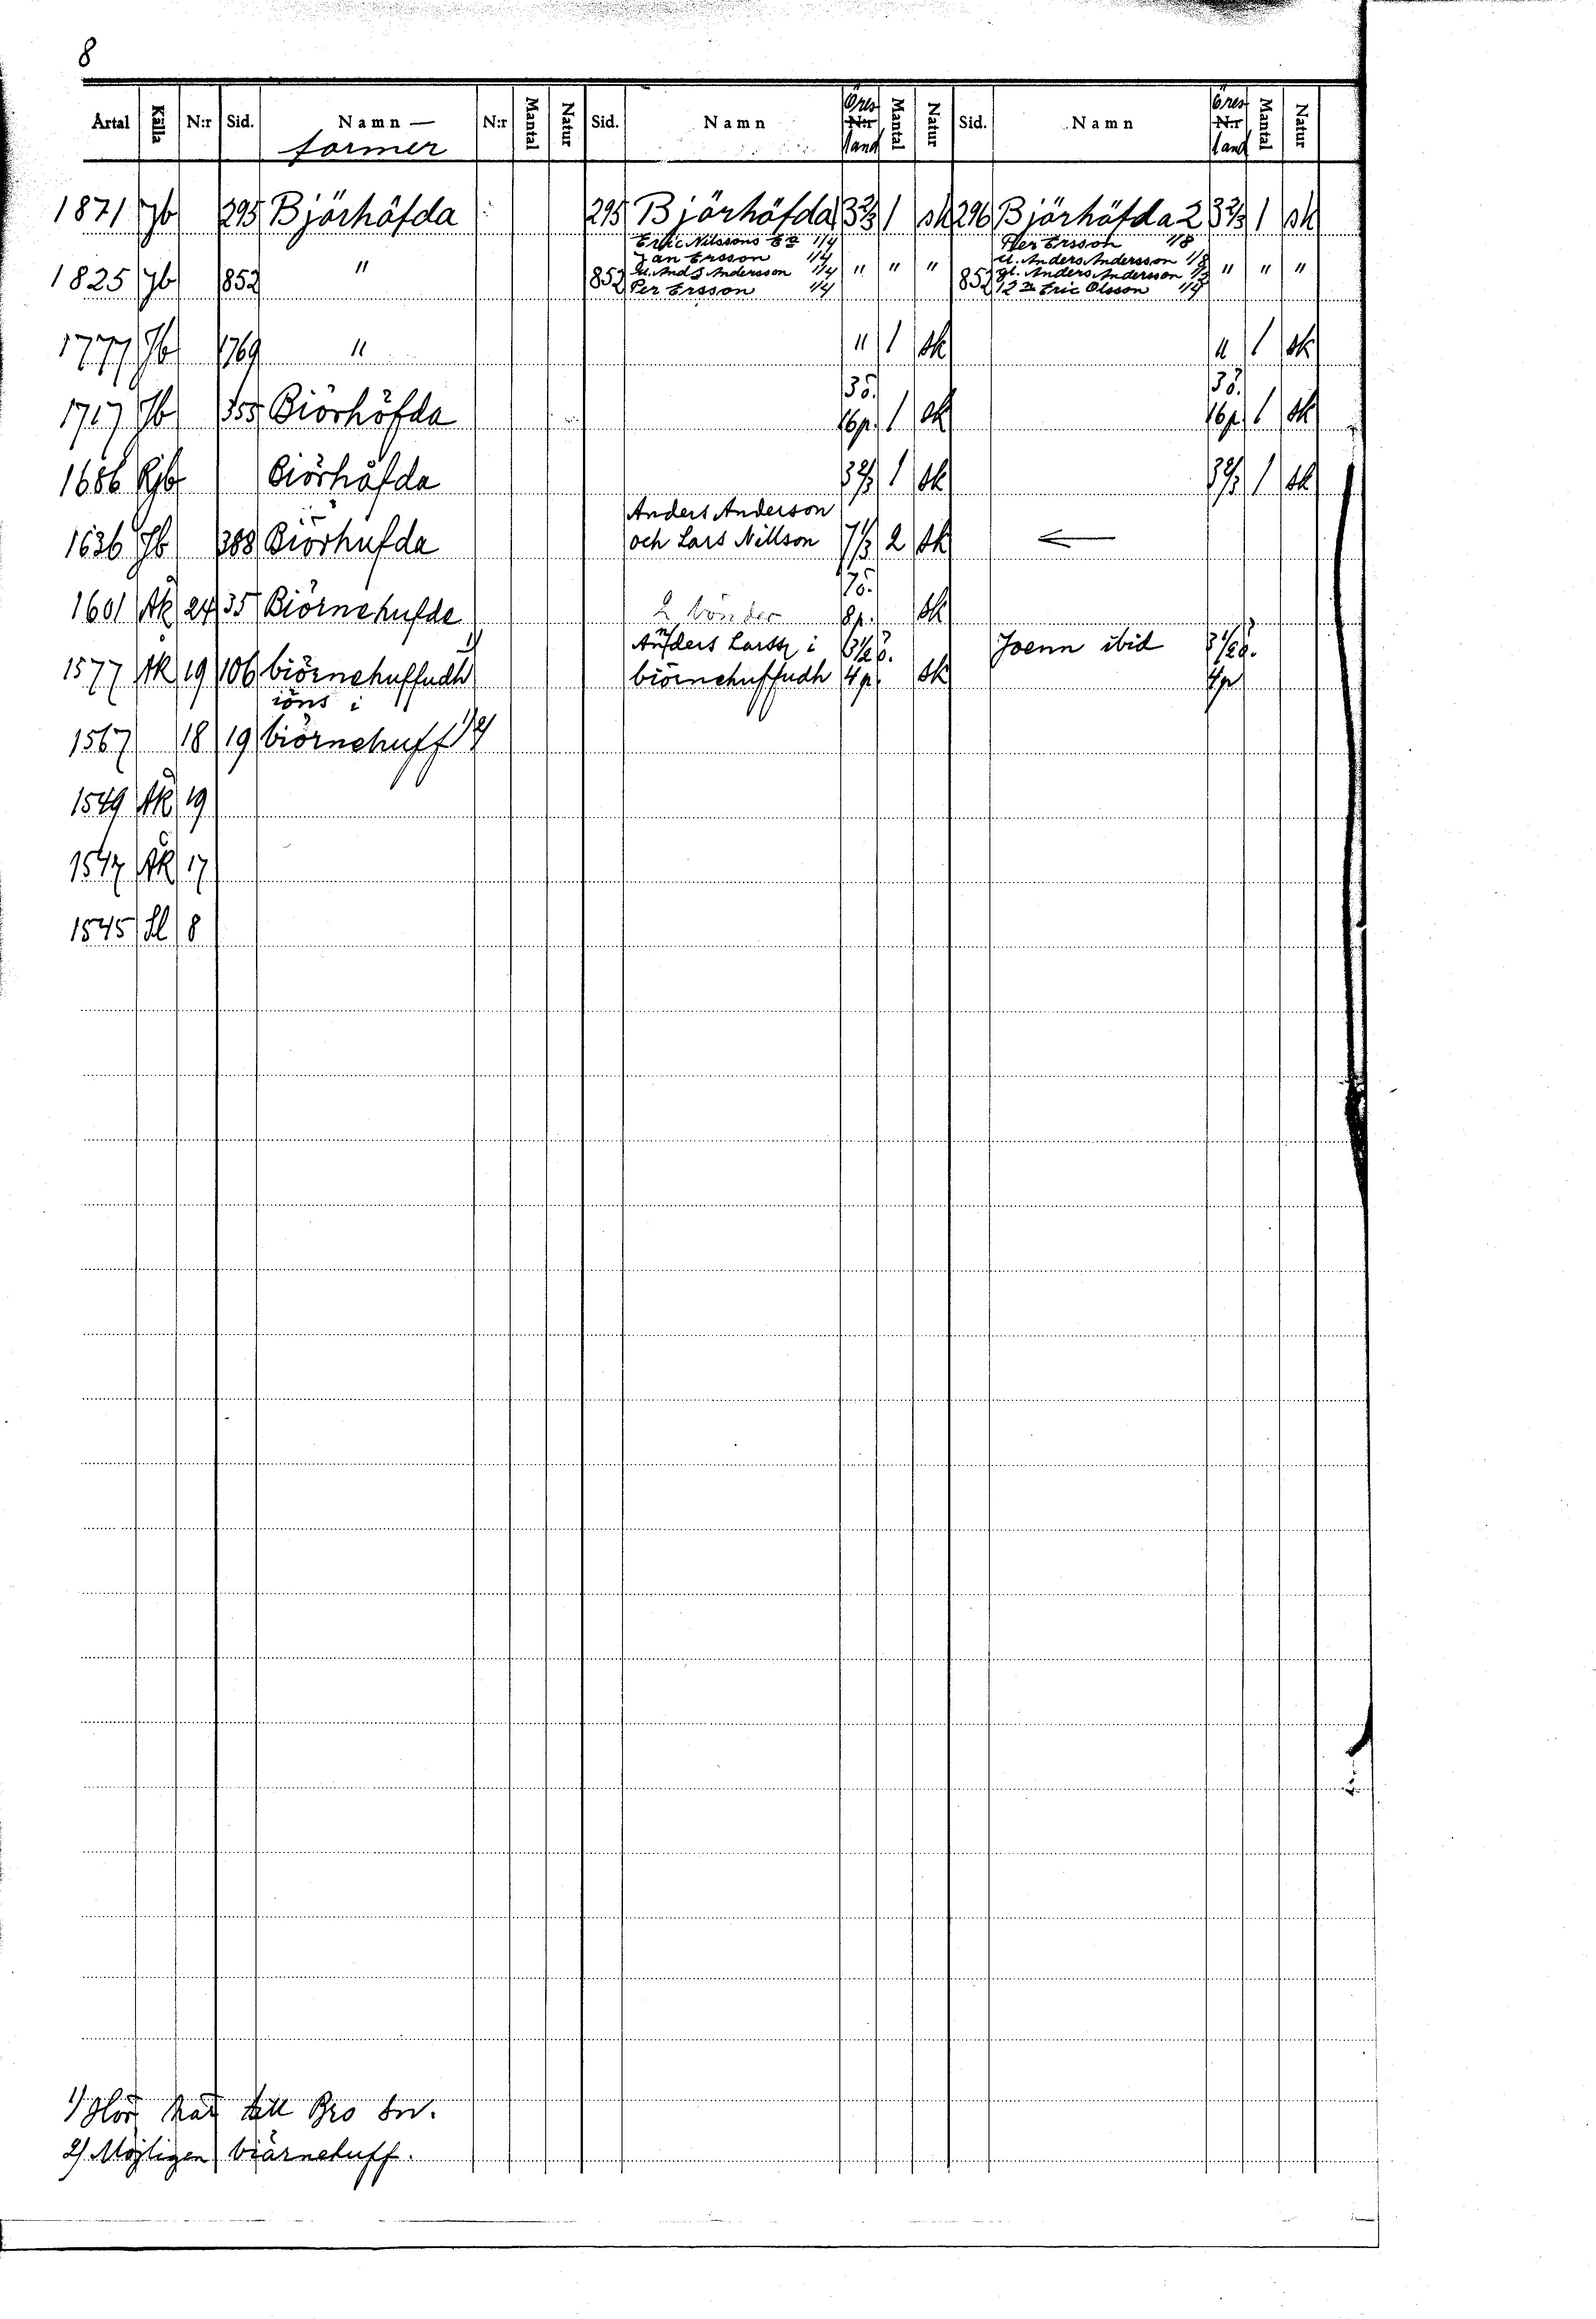 8
Årtal Källa N:r Sid. Namn — N:r Mantal Natur Sid. Namn Öres N:r land Mantal Natur Sid. Namn Öres N:r land Mantal Natur
former
1871 Jb 295 Björhöfda 295 Björhöfda 3 2/3 1 sk 296 Björhöfda 2 3 2/3 1 sk
Eric Nilssons 1/4 Per Ersson 1/8
Jan Ersson 1/4 u. Anders Andersson 1/8
1825 Jb 852 " 852 u. And S Andersson 1/4 " " " 852 gl. Anders Andersson " " "
Per Ersson 1/4 Eric Olsson 1/4
1777 Jb 1769 " " 1 sk " 1 sk
3ö. 3ö.
1717 Jb 355 Biörhöfda 16p. 1 sk 16p. 1 sk
1686 Rjb Biörhöfda 3 2/3 1 sk 3 2/3 1 sk
Anders Anderson
1636 Jb 388 Biörhufda och Lars Nillson 7 1/3 2 sk ←
7ö.
1601 Åk 24 35 Biörnehufde 2 bönder 8p. sk
Anders Larss i 3 1/2 ö. Joenn ibid 3 1/2 ö.
1577 Åk 19 106 biörnehuffudh 1) biörnehuffudh 4p. sk 4p
iöns i
1567 18 19 biörnehuff 1) 2)
1549 Åk 19
1547 Åk 17
1545 Sl 8
1) Hör här till Bro sn.
2) Möjligen biärnehuff.